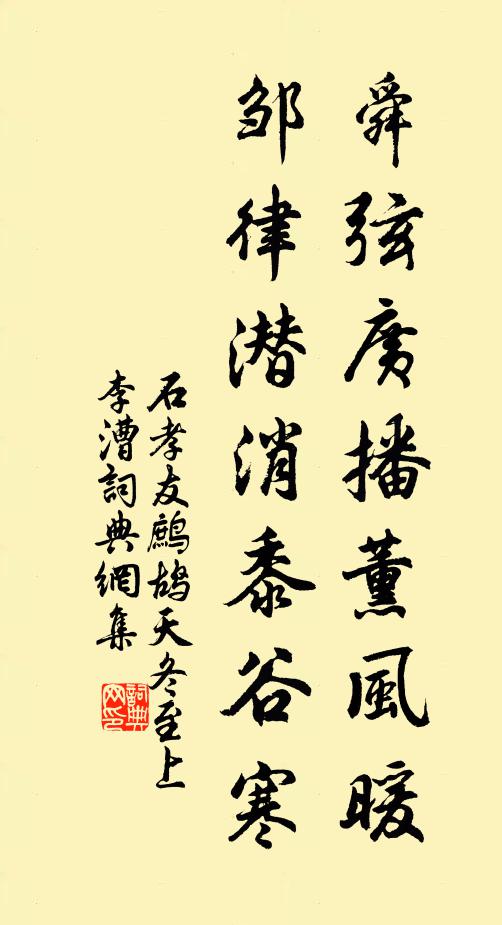 舜弦廣播薰風暖
邹律潜消黍谷寒
石孝友鷓鴣天冬至上
李漕詞典網集
詞典网印